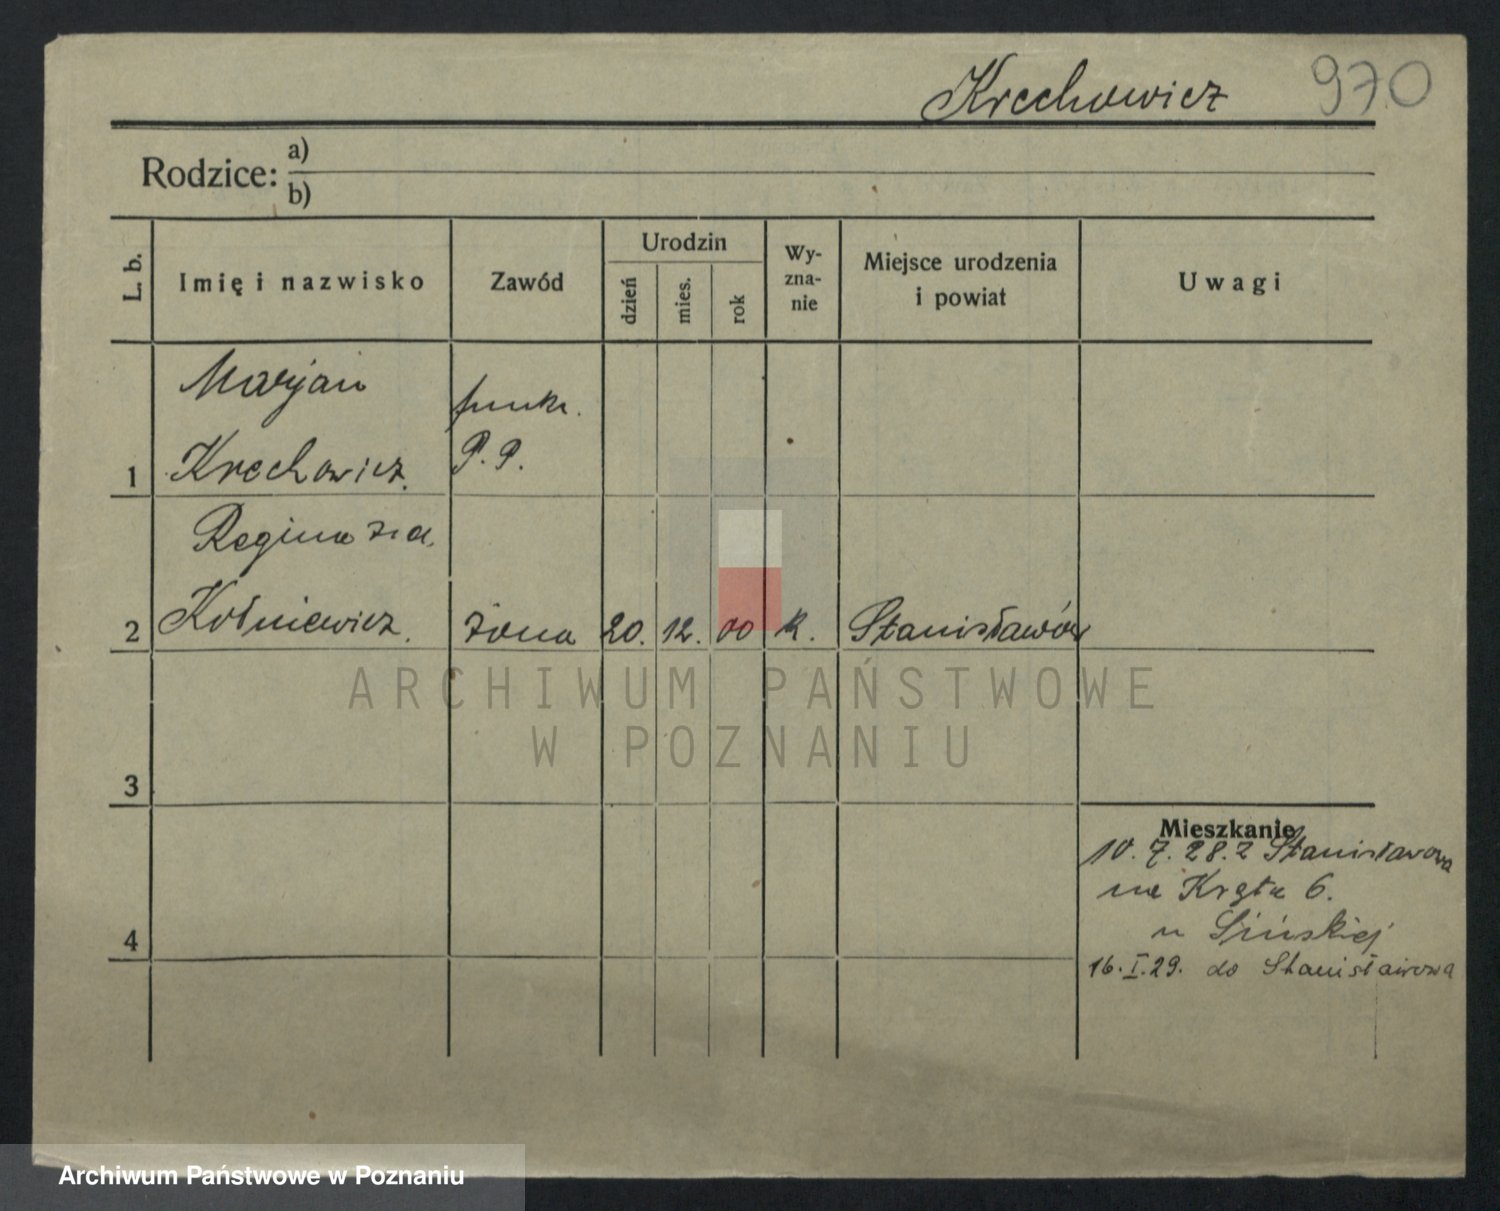 Krechowicz 970
Rodzice: a)
b)
L. b. Imię i nazwisko Zawód Urodzin dzień mies. rok Wy-zna-nie Miejsce urodzenia i powiat Uwagi
Marjan funkc.
1 Krechowicz P.P.
Regina z d.
2 Kołniewicz. żona 20. 12. 00 k. Stanisławów
ARCHIWUM PAŃSTWOWE
W POZNANIU
3
Mieszkanie
10. 7. 28. z Stanisławowa
na Kręta 6.
u Sińskiej
4
16. I. 29. do Stanisławowa
Archiwum Państwowe w Poznaniu